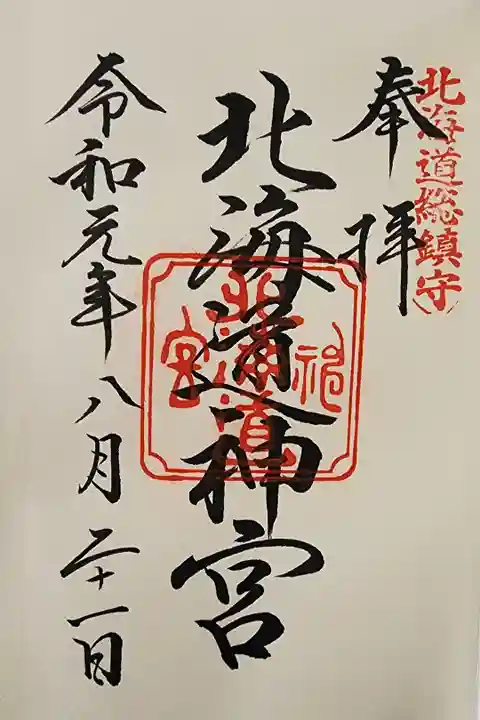 北海道総鎮守
奉拝
北海道神宮
北海道
神
宮
令和元年八月二十一日